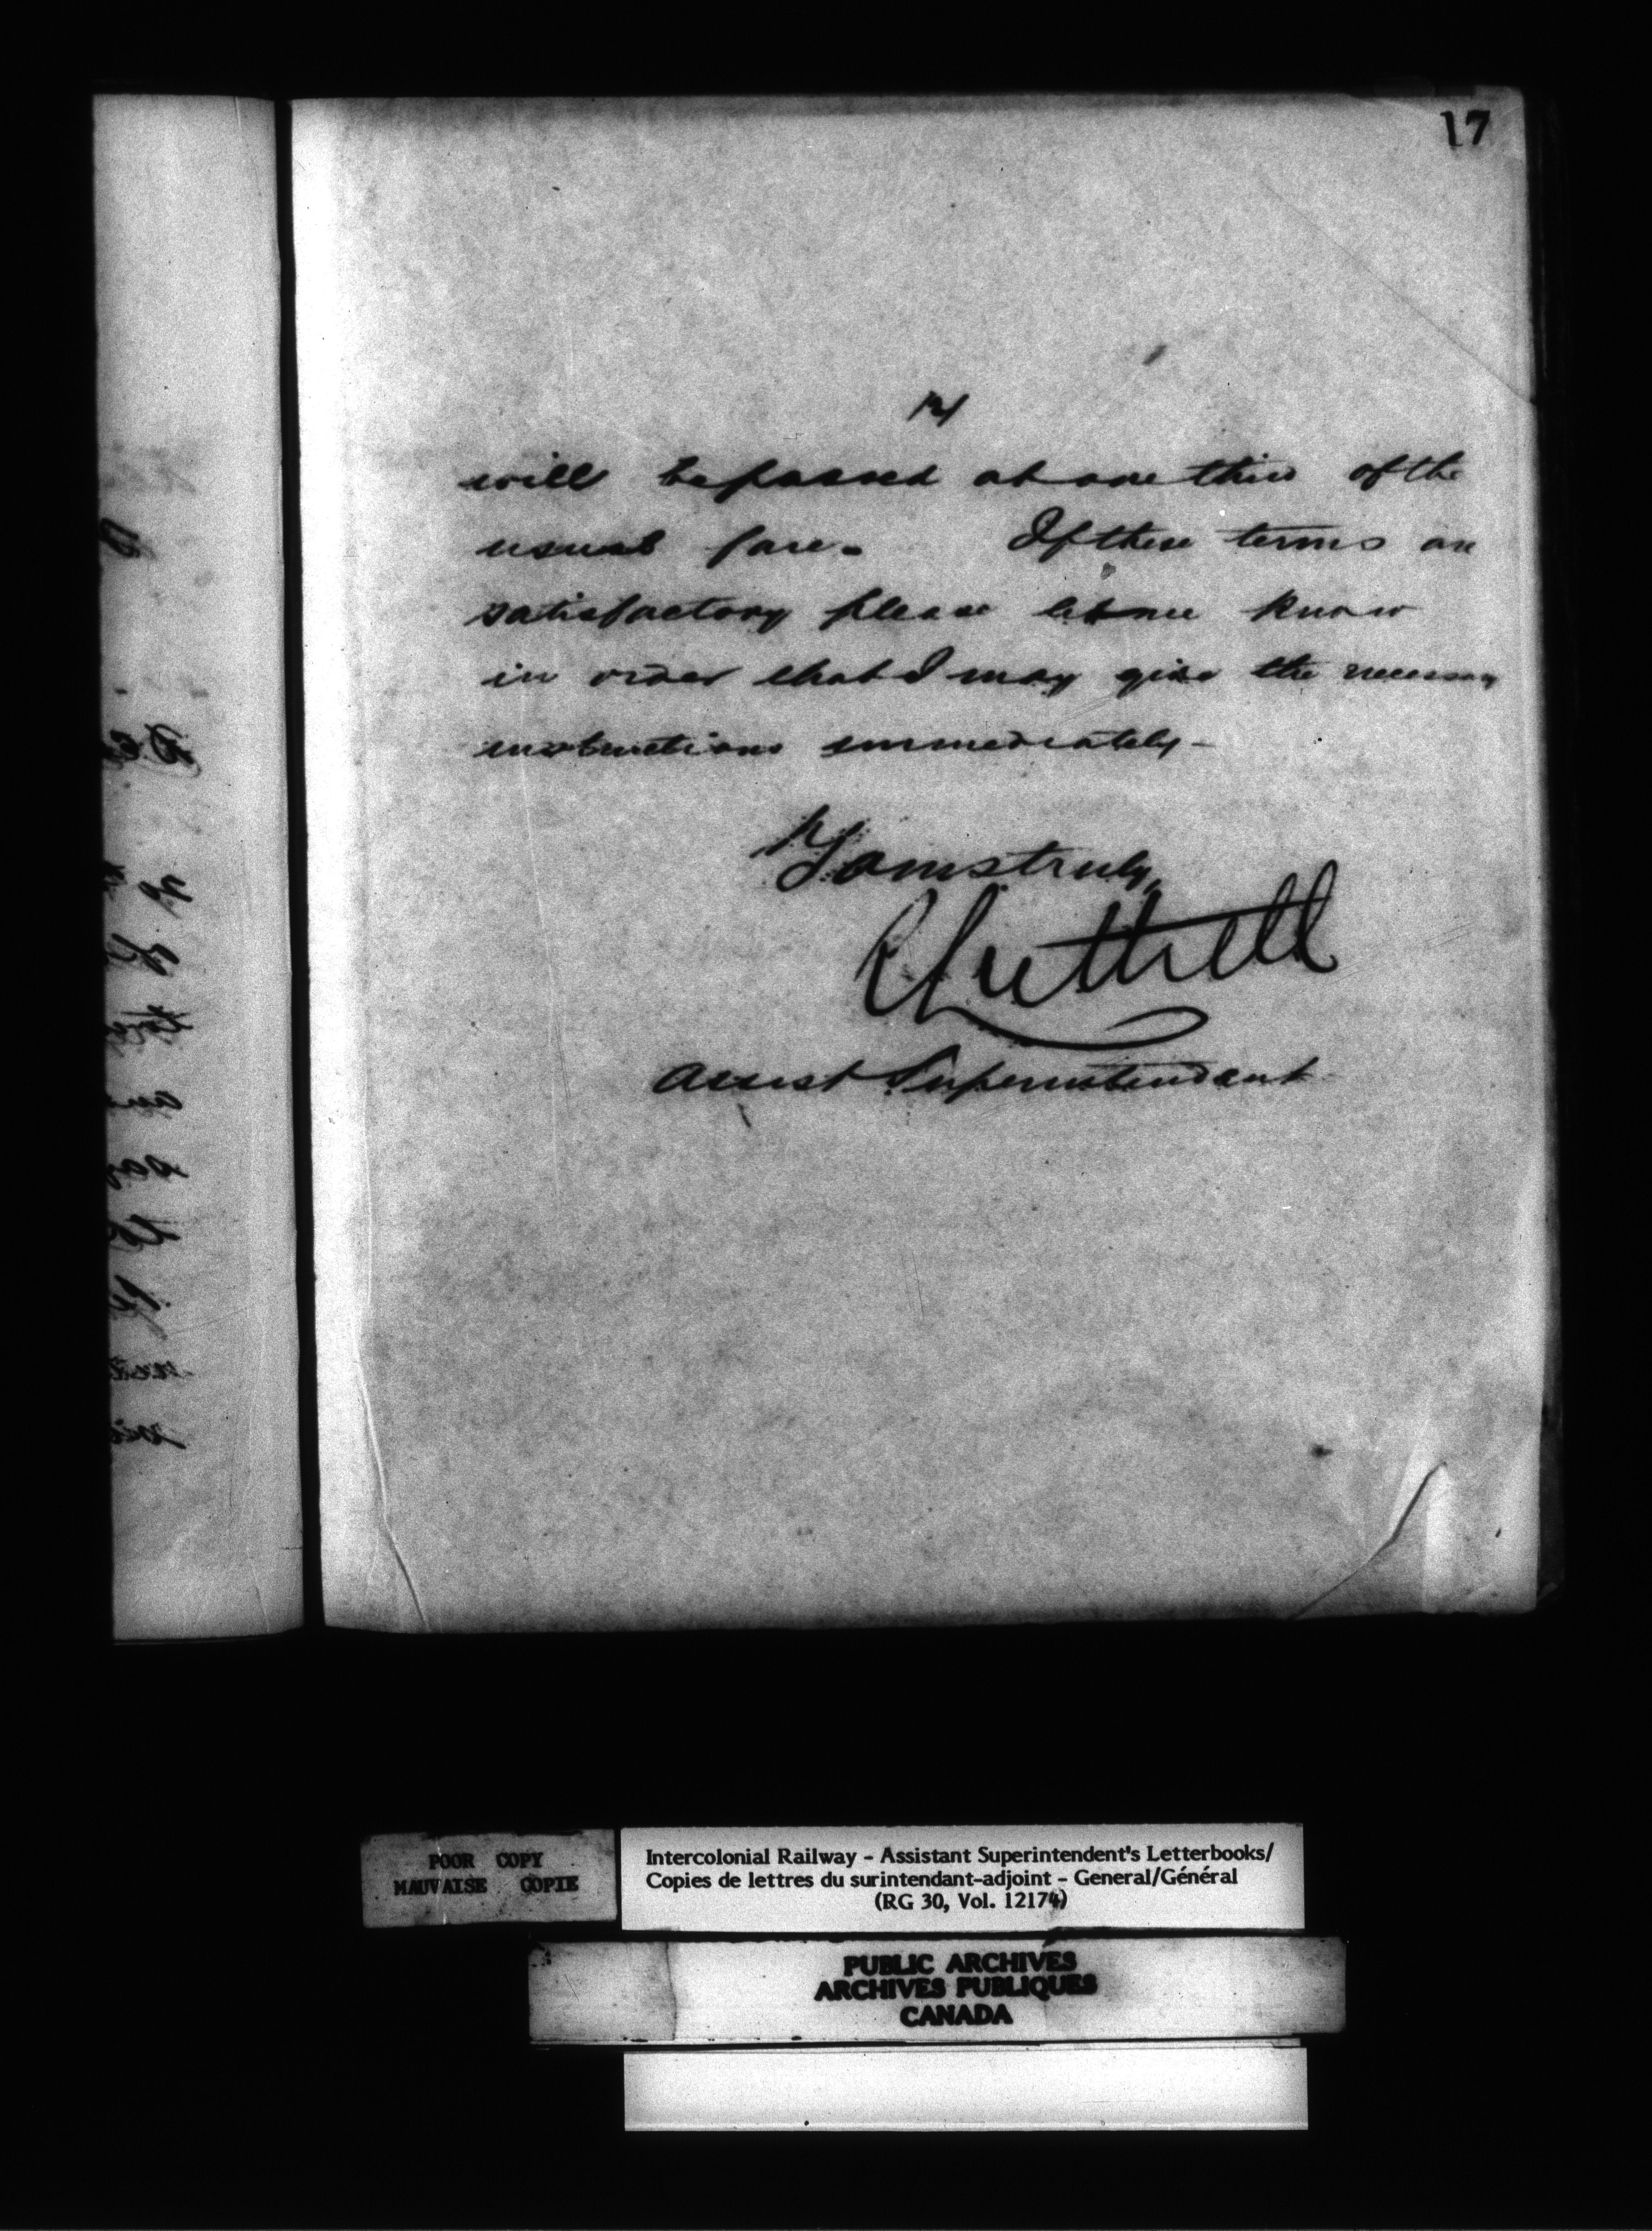 17
will be passed at one third of the
usual fare. If these terms are
satisfactory please let me know
in order that I may give the necessary
instructions immediately -
Yours truly,
Luttrell
Assist Superintendent
POOR COPY
MAUVAISE COPIE
Intercolonial Railway - Assistant Superintendent's Letterbooks/
Copies de lettres du surintendant-adjoint - General/Général
(RG 30, Vol. 12174)
PUBLIC ARCHIVES
ARCHIVES PUBLIQUES
CANADA